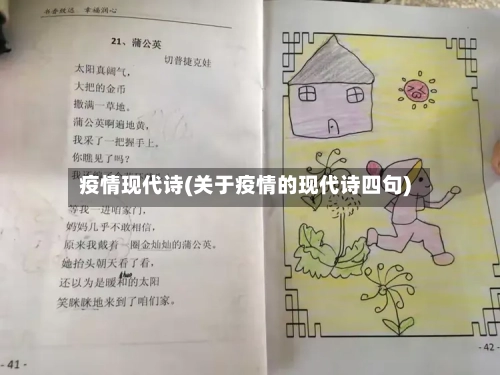 书香致远 幸福润心
21、蒲公英
切普捷克娃
太阳真阔气，
大把的金币
撒满一草地。
蒲公英啊遍地黄，
我采了一把握手上，
你瞧见了吗？
疫情现代诗(关于疫情的现代诗四句)
等我一进咱家门，
妈妈几乎不敢相信，
原来我戴着一圈金灿灿的蒲公英。
她抬头朝天看了看，
还以为是暖和的太阳
笑眯眯地来到了咱们家。
- 41 -
- 42 -